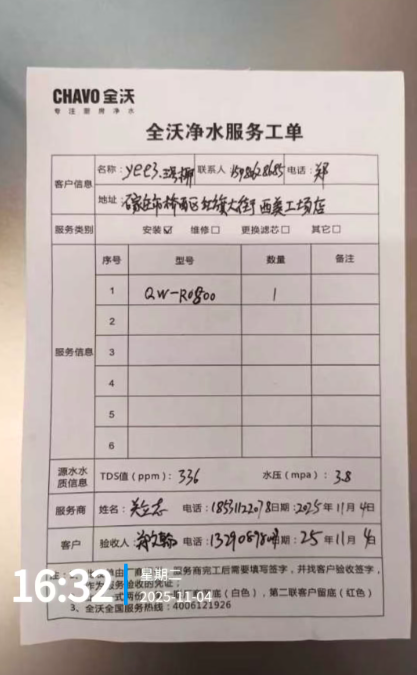 CHAVO 全沃
专注厨房净水
全沃净水服务工单
客户信息 名称: yee3 联系人 电话: 郑
地址: 石家庄市桥西区红旗大街西美工场店
服务类别 安装☑ 维修□ 更换滤芯□ 其它□
服务信息 序号 型号 数量 备注
1 QW-R0800 1
2
3
4
5
6
源水水质信息 TDS值(ppm): 336 水压(mpa): 3.8
服务商 姓名: 电话: 18531122078 日期: 2025年11月4日
客户 验收人: 电话: 期: 25年11月4日
商完工后需要填写签字,并找客户验收签字,
作为服务验收的凭证;
底(白色),第二联客户留底(红色)
3、全沃全国服务热线:4006121926
16:32
星期二
2025-11-04